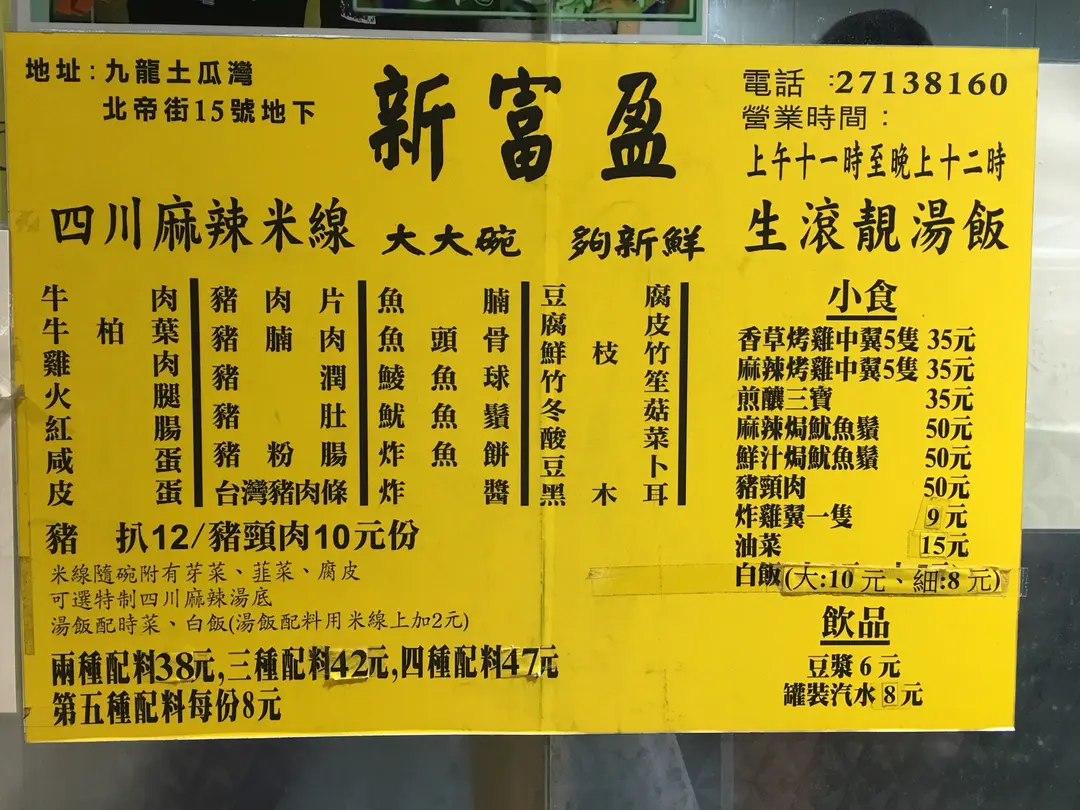 地址:九龍土瓜灣
北帝街15號地下
新富盈
電話 :27138160
營業時間:
上午十一時至晚上十二時
四川麻辣米線
大大碗 夠新鮮
生滾靚湯飯
牛肉
牛柏葉
雞肉
火腿
紅腸
咸蛋
皮蛋
豬肉片
豬腩肉
豬潤
豬肚
豬粉腸
台灣豬肉條
魚腩
魚頭骨
鯪魚球
魷魚鬚
炸魚餅
炸醬
豆腐
腐皮
鮮枝竹
竹笙
冬菇
酸菜
豆卜
黑木耳
豬 扒12/豬頸肉10元份
米線隨碗附有芽菜、韮菜、腐皮
可選特制四川麻辣湯底
湯飯配時菜、白飯(湯飯配料用米線上加2元)
兩種配料38元,三種配料42元,四種配料47元
第五種配料每份8元
小食
香草烤雞中翼5隻 35元
麻辣烤雞中翼5隻 35元
煎釀三寶 35元
麻辣焗魷魚鬚 50元
鮮汁焗魷魚鬚 50元
豬頸肉 50元
炸雞翼一隻 9元
油菜 15元
白飯(大:10元、細:8元)
飲品
豆漿6元
罐裝汽水8元